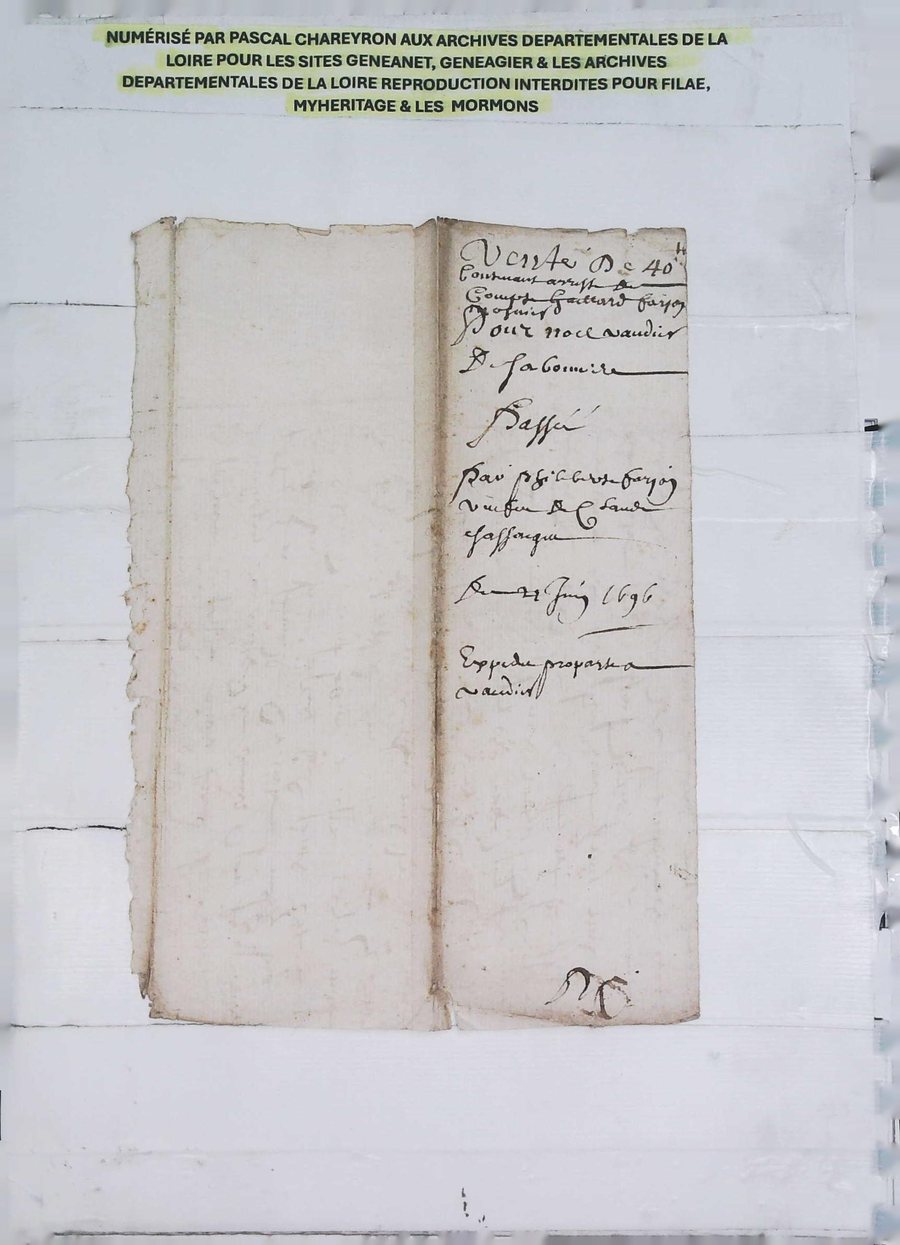 NUMÉRISÉ PAR PASCAL CHAREYRON AUX ARCHIVES DEPARTEMENTALES DE LA
LOIRE POUR LES SITES GENEANET, GENEAGIER & LES ARCHIVES
DEPARTEMENTALES DE LA LOIRE REPRODUCTION INTERDITES POUR FILAE,
MYHERITAGE & LES MORMONS
Vente De 40
Contenant arrest de
Compte gaillard farjon
Pour noel vaudier
De
Passée
Par philiberte farjon
veufve de Claude
chassaigne
Du Juin 1696
Expedie pro parte a
vaudier